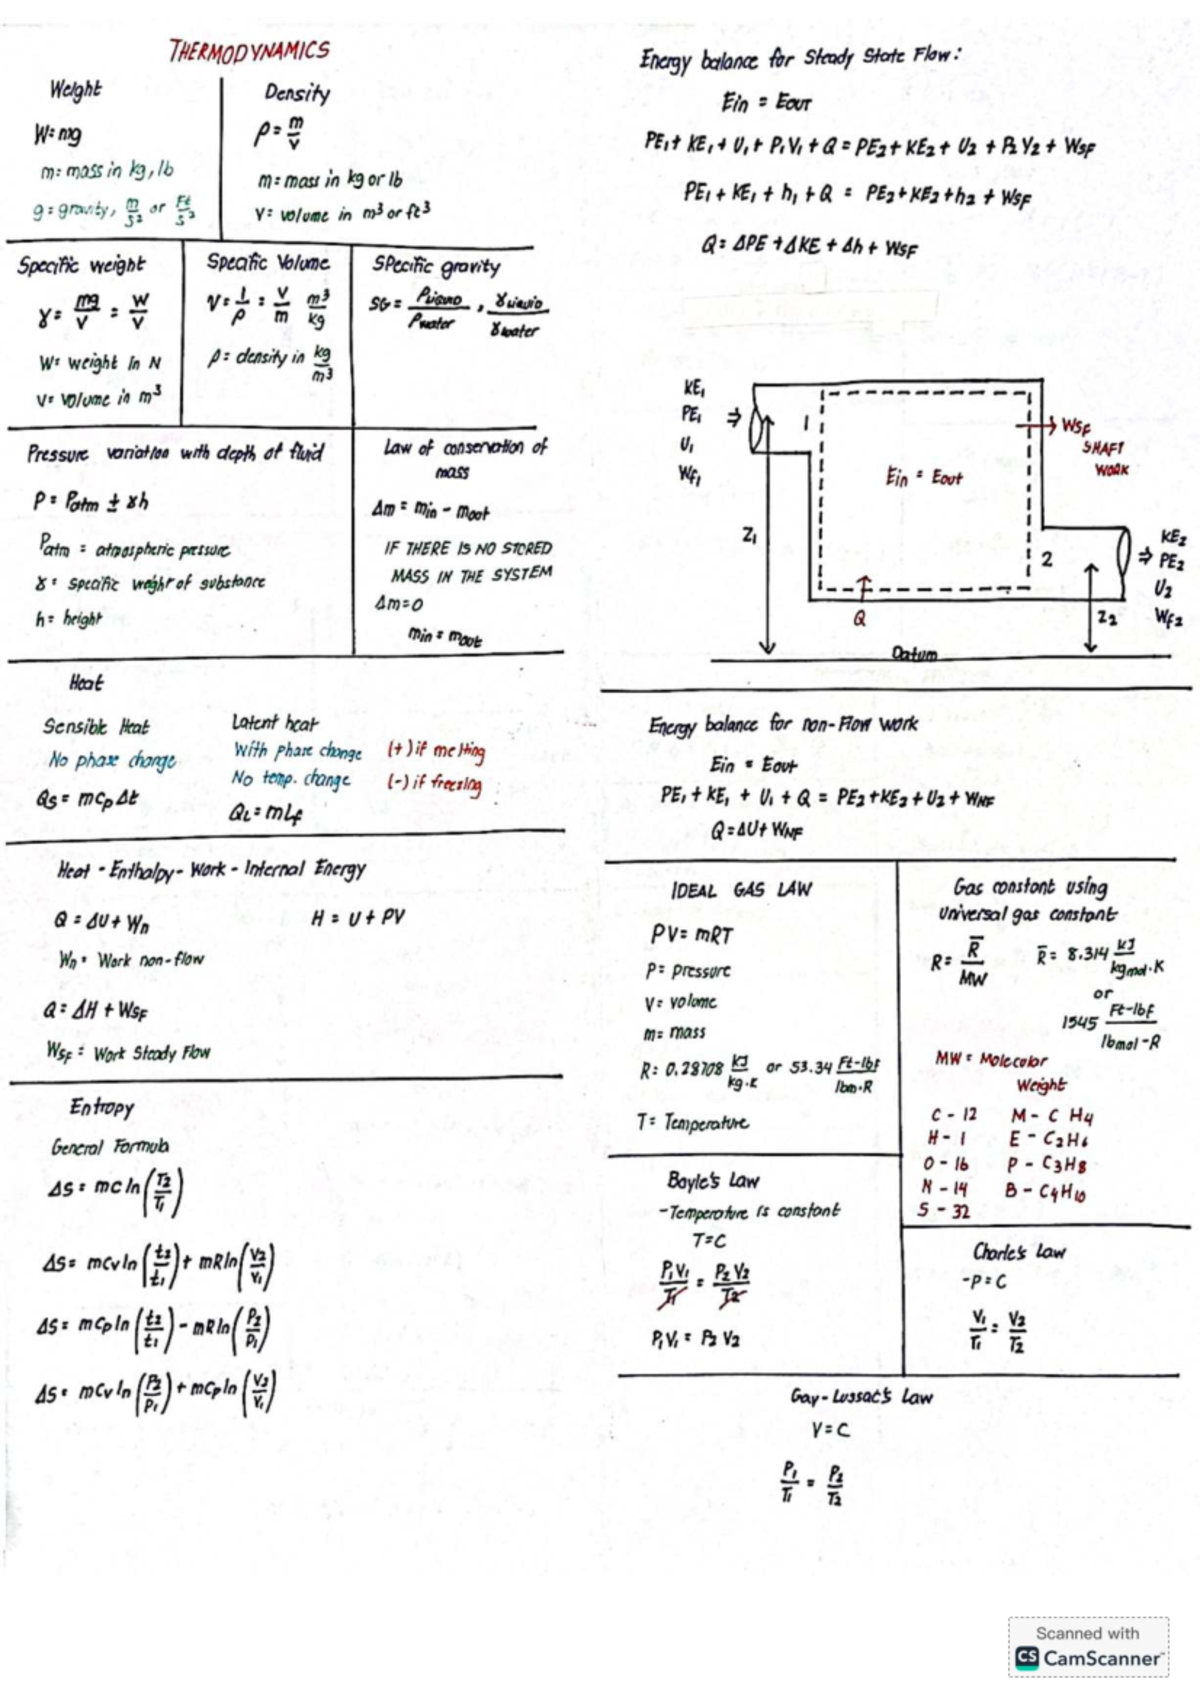 THERMODYNAMICS
Weight
W=mg
m= mass in kg, lb
g= gravity, m/s² or Ft/s²
Density
ρ = m/v
m= mass in kg or lb
V= volume in m³ or ft³
Specific weight
γ = mg/V = W/V
W= weight in N
V= volume in m³
Specific Volume
V = 1/ρ = V/m m³/kg
ρ = density in kg/m³
SPecific gravity
SG = ρLIQUID/ρwater , γLIQUID/γwater
Pressure variation with depth of fluid
P = Patm ± γh
Patm = atmospheric pressure
γ = specific weight of substance
h = height
Law of conservation of
mass
Δm = min - mout
IF THERE IS NO STORED
MASS IN THE SYSTEM
Δm=0
min = mout
Heat
Sensible Heat
No phase change
Qs = mcpΔt
Latent heat
With phase change (+) if melting
No temp. change (-) if freezing
QL = mLf
Heat - Enthalpy - Work - Internal Energy
Q = ΔU + Wn
H = U + PV
Wn = Work non-flow
Q = ΔH + WSF
WSF = Work Steady Flow
Entropy
General Formula
ΔS = mc ln (T2/T1)
ΔS = mcv ln (t2/t1) + mRln (V2/V1)
ΔS = mcp ln (t2/t1) - mRln (P2/P1)
ΔS = mcv ln (P2/P1) + mcp ln (V2/V1)
Energy balance for Steady State Flow:
Ein = EOUT
PE1 + KE1 + U1 + P1V1 + Q = PE2 + KE2 + U2 + P2V2 + WSF
PE1 + KE1 + h1 + Q = PE2 + KE2 + h2 + WSF
Q = ΔPE + ΔKE + Δh + WSF
KE1
PE1
U1
Wf1
1
Z1
Ein = Eout
WSF
SHAFT
WORK
Q
2
Z2
KE2
PE2
U2
Wf2
Datum
Energy balance for non-Flow work
Ein = Eout
PE1 + KE1 + U1 + Q = PE2 + KE2 + U2 + WNF
Q = ΔU + WNF
IDEAL GAS LAW
PV = mRT
P = pressure
V = volume
m = mass
R = 0.28708 kJ/kg·K or 53.34 Ft-lbf/lbm·R
T = Temperature
Gas constant using
Universal gas constant
R = R̅/MW
R̅ = 8.314 kJ/kgmol·K
or
1545 Ft-lbf/lbmol-R
MW = Molecular
Weight
C - 12 M - C H4
H - 1 E - C2H6
O - 16 P - C3H8
N - 14 B - C4H10
S - 32
Boyle's Law
-Temperature is constant
T=C
P1V1/T1 = P2V2/T2
P1V1 = P2V2
Charle's Law
-P=C
V1/T1 = V2/T2
Gay-Lussac's Law
V=C
P1/T1 = P2/T2
Scanned with
CS CamScanner